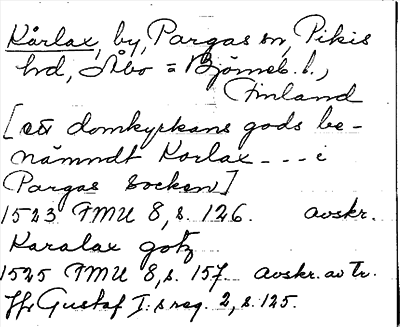 Kårlax, by, Pargas sn, Pikis
hd, Åbo = Björneb. l.,
Finland
[ett domkyrkans gods be-
nämndt Korlax --- i
Pargas socken]
1523 FMU 8, s. 126. avskr.
Karalax gotz
1525 FMU 8, s. 157. avskr. av tr.
Jfr Gustaf I:s reg. 2, s. 125.